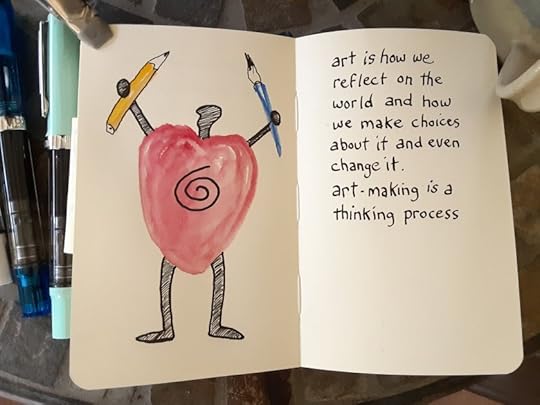 art is how we
reflect on the
world and how
we make choices
about it and even
change it.
art-making is a
thinking process